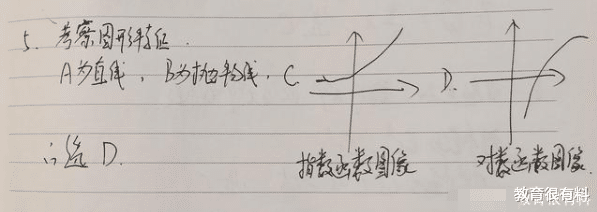 5. 考察图形特征.
A为直线, B为抛物线, C. D.
∴选 D.
指数函数图像 对数函数图像
教育很有料